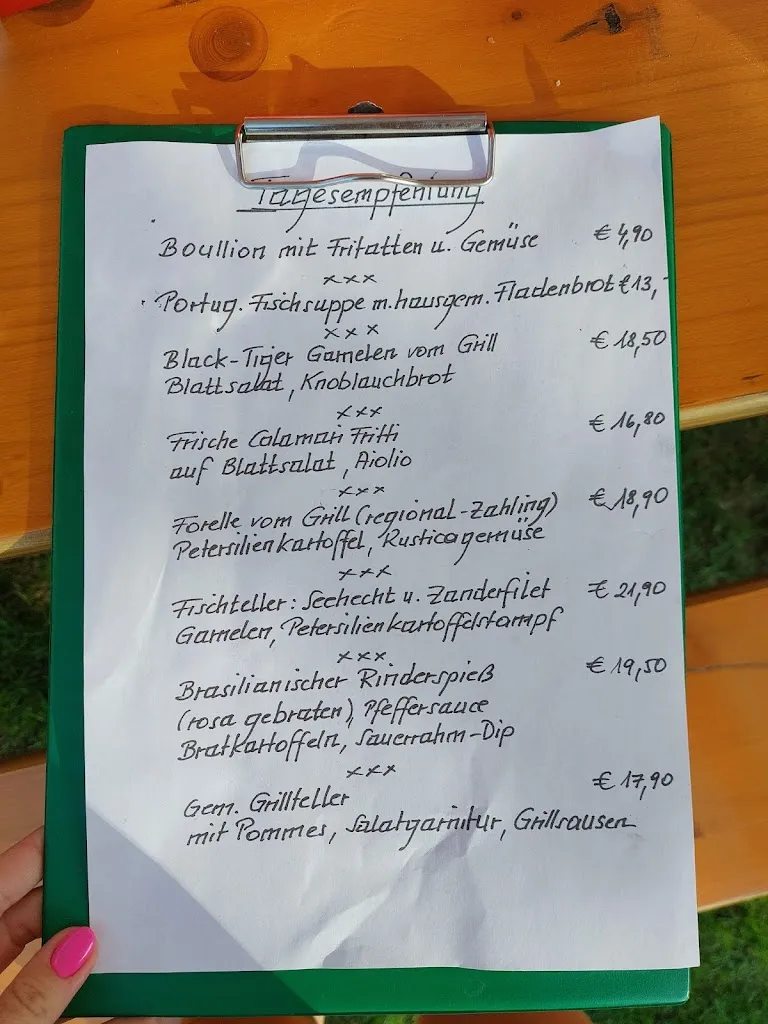 Tagesempfehlung
Boullion mit Fritatten u. Gemüse € 4,90
xxx
Portug. Fischsuppe m. hausgem. Fladenbrot €13,-
xxx
Black-Tiger Garnelen vom Grill € 18,50
Blattsalat, Knoblauchbrot
xxx
Frische Calamari Fritti € 16,80
auf Blattsalat, Aiolio
xxx
Forelle vom Grill (regional-Zahling) € 18,90
Petersilienkartoffel, Rusticagemüse
xxx
Fischteller: Seehecht u. Zanderfilet € 21,90
Garnelen, Petersilienkartoffelstampf
xxx
Brasilianischer Rinderspieß € 19,50
(rosa gebraten), Pfeffersauce
Bratkartoffeln, Sauerrahm-Dip
xxx
Gem. Grillteller € 17,90
mit Pommes, Salatgarnitur, Grillsausen